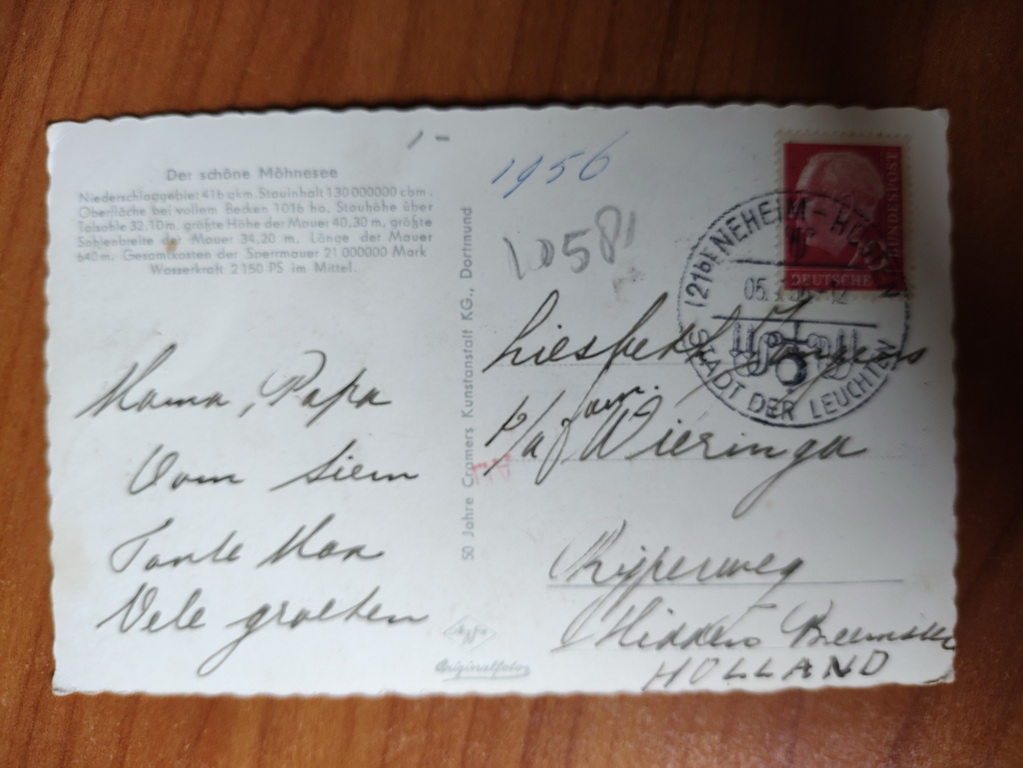 1-
Der schöne Möhnesee
Niederschlaggebiet 416 qkm. Stauinhalt 130 000000 cbm.
Oberfläche bei vollem Becken 1016 ha. Stauhöhe über
Talsohle 32.10 m. größte Höhe der Mauer 40,30 m, größte
Sohlenbreite der Mauer 34,20 m. Länge der Mauer
640 m. Gesamtkosten der Sperrmauer 21 000000 Mark
Wasserkraft 2 150 PS im Mittel.
Mama, Papa
Oom Siem
Tante Man
Vele groeten
50 Jahre Cramers Kunstanstalt KG., Dortmund
Agfa
Originalfoto
1956
DEUTSCHE BUNDESPOST
(21b) NEHEIM-HÜSTEN
05.
-12
STADT DER LEUCHTEN
Liesbeth
fam
p/a Wieringa
Rijperweg
Midden Beemster
HOLLAND